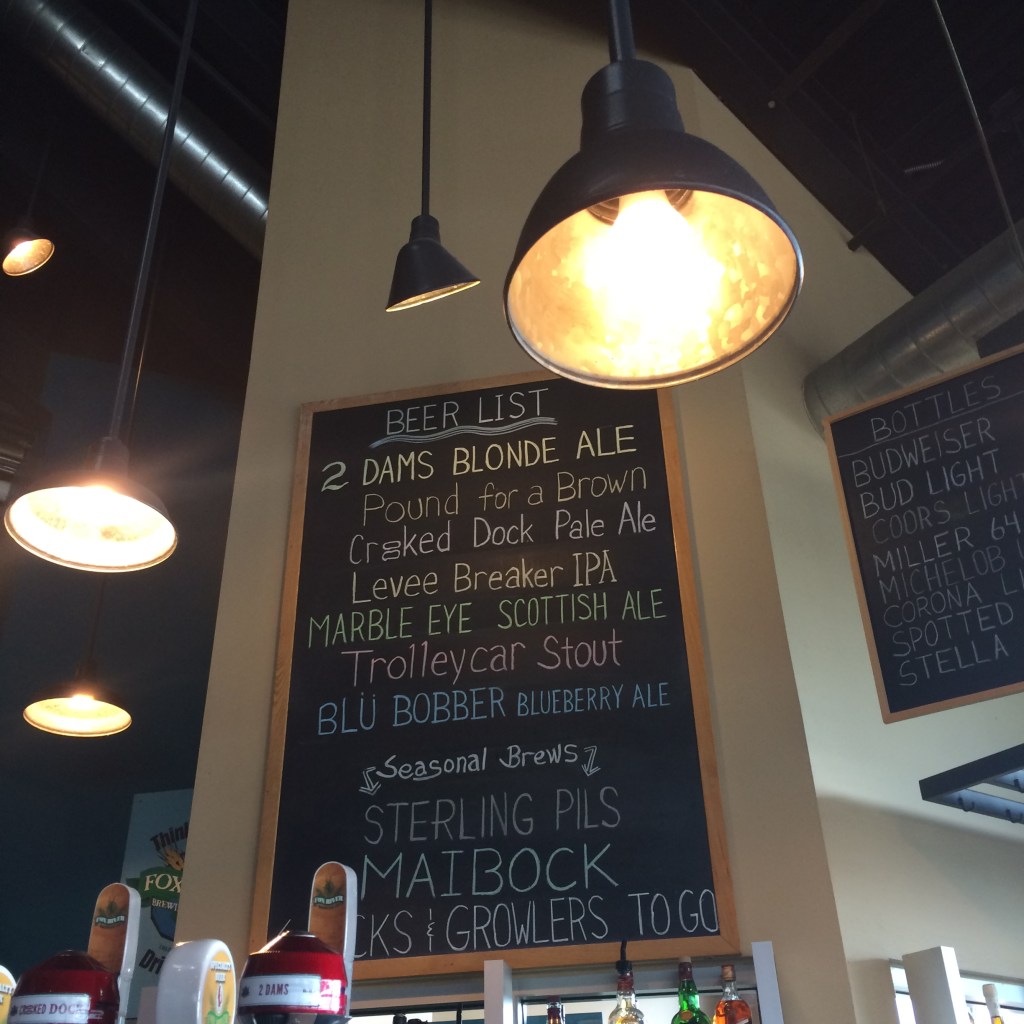 BEER LIST
2 DAMS BLONDE ALE
Pound for a Brown
Crooked Dock Pale Ale
Levee Breaker IPA
MARBLE EYE SCOTTISH ALE
Trolleycar Stout
BLÜ BOBBER BLUEBERRY ALE
Seasonal Brews
STERLING PILS
MAIBOCK
& GROWLERS TO GO
BOTTLES
BUDWEISER
BUD LIGHT
COORS LIGHT
MILLER 64
MICHELOB
CORONA
SPOTTED
STELLA
FOX
CROOKED DOCK
2 DAMS
FOX RIVER